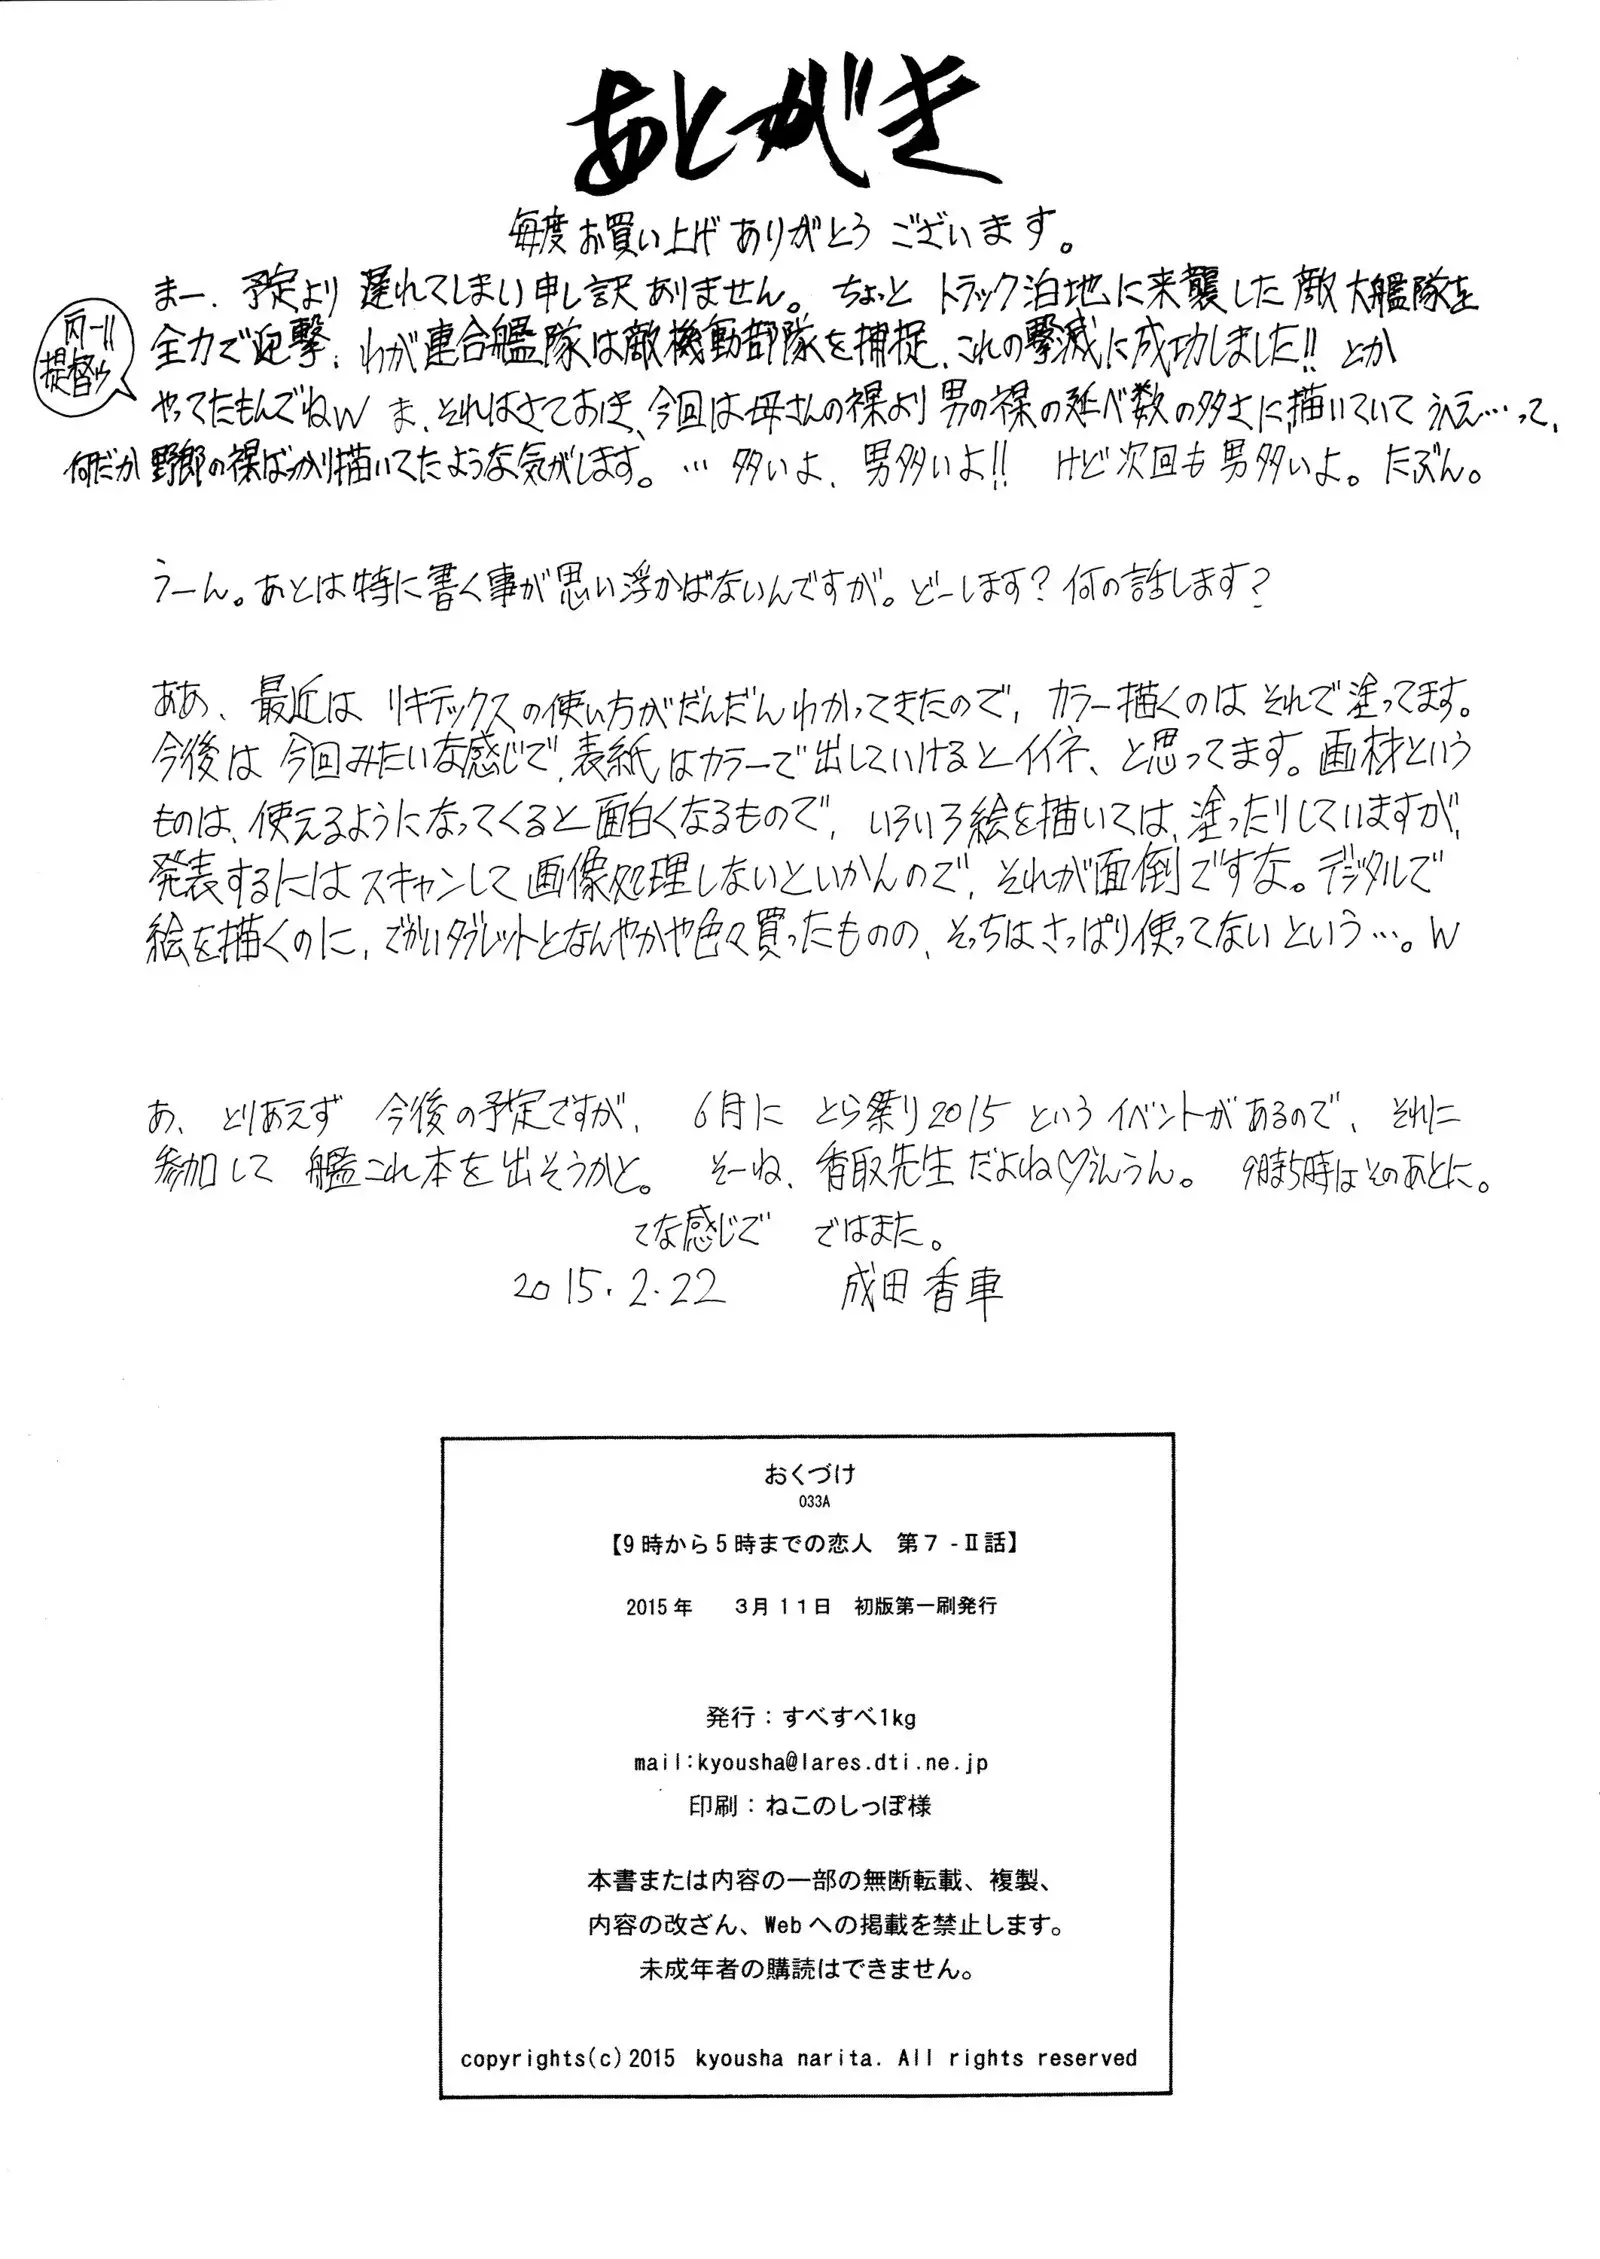 あとがき
毎度お買い上げありがとうございます。
まー、予定より遅れてしまい申し訳ありません。ちょっとトラック泊地に来襲した敵大艦隊を
全力で迎撃、わが連合艦隊は敵機動部隊を捕捉、これの撃滅に成功しました!!とか
丙一II
提督ッ
やってたもんでねw ま、それはさておき、今回は母さんの裸より男の裸の延べ数の多さに、描いていてうえぇ…って、
何だか野郎の裸ばっかり描いてたような気がします。…多いよ、男多いよ!! けど次回も男多いよ。たぶん。
うーん。あとは特に書く事が思い浮かばないんですが。どーします?何の話します?
ああ、最近はリキテックスの使い方がだんだんわかってきたので、カラー描くのはそれで塗ってます。
今後は今回みたいな感じで、表紙はカラーで出していけるとイイネ、と思ってます。画材という
ものは、使えるようになってくると面白くなるもので、いろいろ絵を描いては、塗ったりしていますが、
発表するにはスキャンして画像処理しないといかんので、それが面倒ですな。デジタルで
絵を描くのに、でかいタブレットとなんやかや色々買ったものの、そっちはさっぱり使ってないという…。w
あ、とりあえず今後の予定ですが、6月にとら祭り2015というイベントがあるので、それに
参加して艦これ本を出そうかと。そーね、香取先生だよね♡うんうん。9時5時はそのあとに。
てな感じで ではまた。
2015.2.22 成田香車
おくづけ
033A
【9時から5時までの恋人 第7-Ⅱ話】
2015年 3月11日 初版第一刷発行
発行：すべすべ1kg
mail:kyousha@lares.dti.ne.jp
印刷：ねこのしっぽ様
本書または内容の一部の無断転載、複製、
内容の改ざん、Webへの掲載を禁止します。
未成年者の購読はできません。
copyrights(c)2015 kyousha narita. All rights reserved